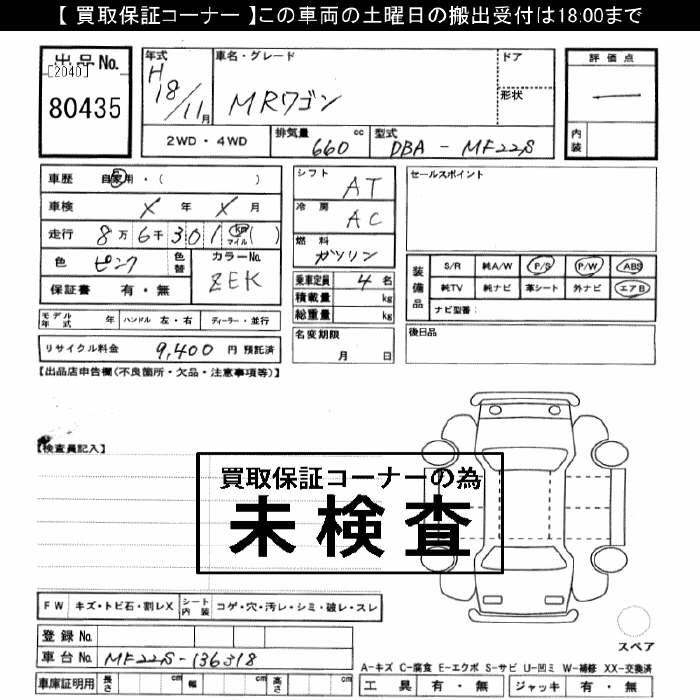 【 買取保証コーナー 】この車両の土曜日の搬出受付は18:00まで
出品No.
[2040]
80435
年式
H
18/11月
車名・グレード
MRワゴン
ドア
形状
2WD・4WD
排気量 660 cc
型式 DBA - MF22S
評価点
—
内装
車歴 自家用・( )
車検 X 年 X 月
走行 8万6千301 km マイル ( )
色 ピンク
色替
カラーNo.
ZEK
保証書 有・無
シフト AT
冷房 AC
燃料 ガソリン
乗車定員 4 名
積載量 kg
総重量 kg
名変期限
月 日
セールスポイント
装備品
S/R 純A/W P/S P/W ABS
純TV 純ナビ 革シート 外ナビ エアB
ナビ型番:
後日品
モデル年式 年
ハンドル 左・右
ディーラー・並行
リサイクル料金 9,400 円 預託済
【出品店申告欄(不良箇所・欠品・注意事項等)】
【検査員記入】
買取保証コーナーの為
未検査
FW キズ・トビ石・割レX
シート内装 コゲ・穴・汚レ・シミ・破レ・スレ
スペア
登録No.
車台No. MF22S-136318
A-キズ C-腐食 E-エクボ S-サビ U-凹ミ W-補修 XX-交換済
車庫証明用 長さ cm 幅 cm 高さ cm
工具 有・無 ジャッキ 有・無